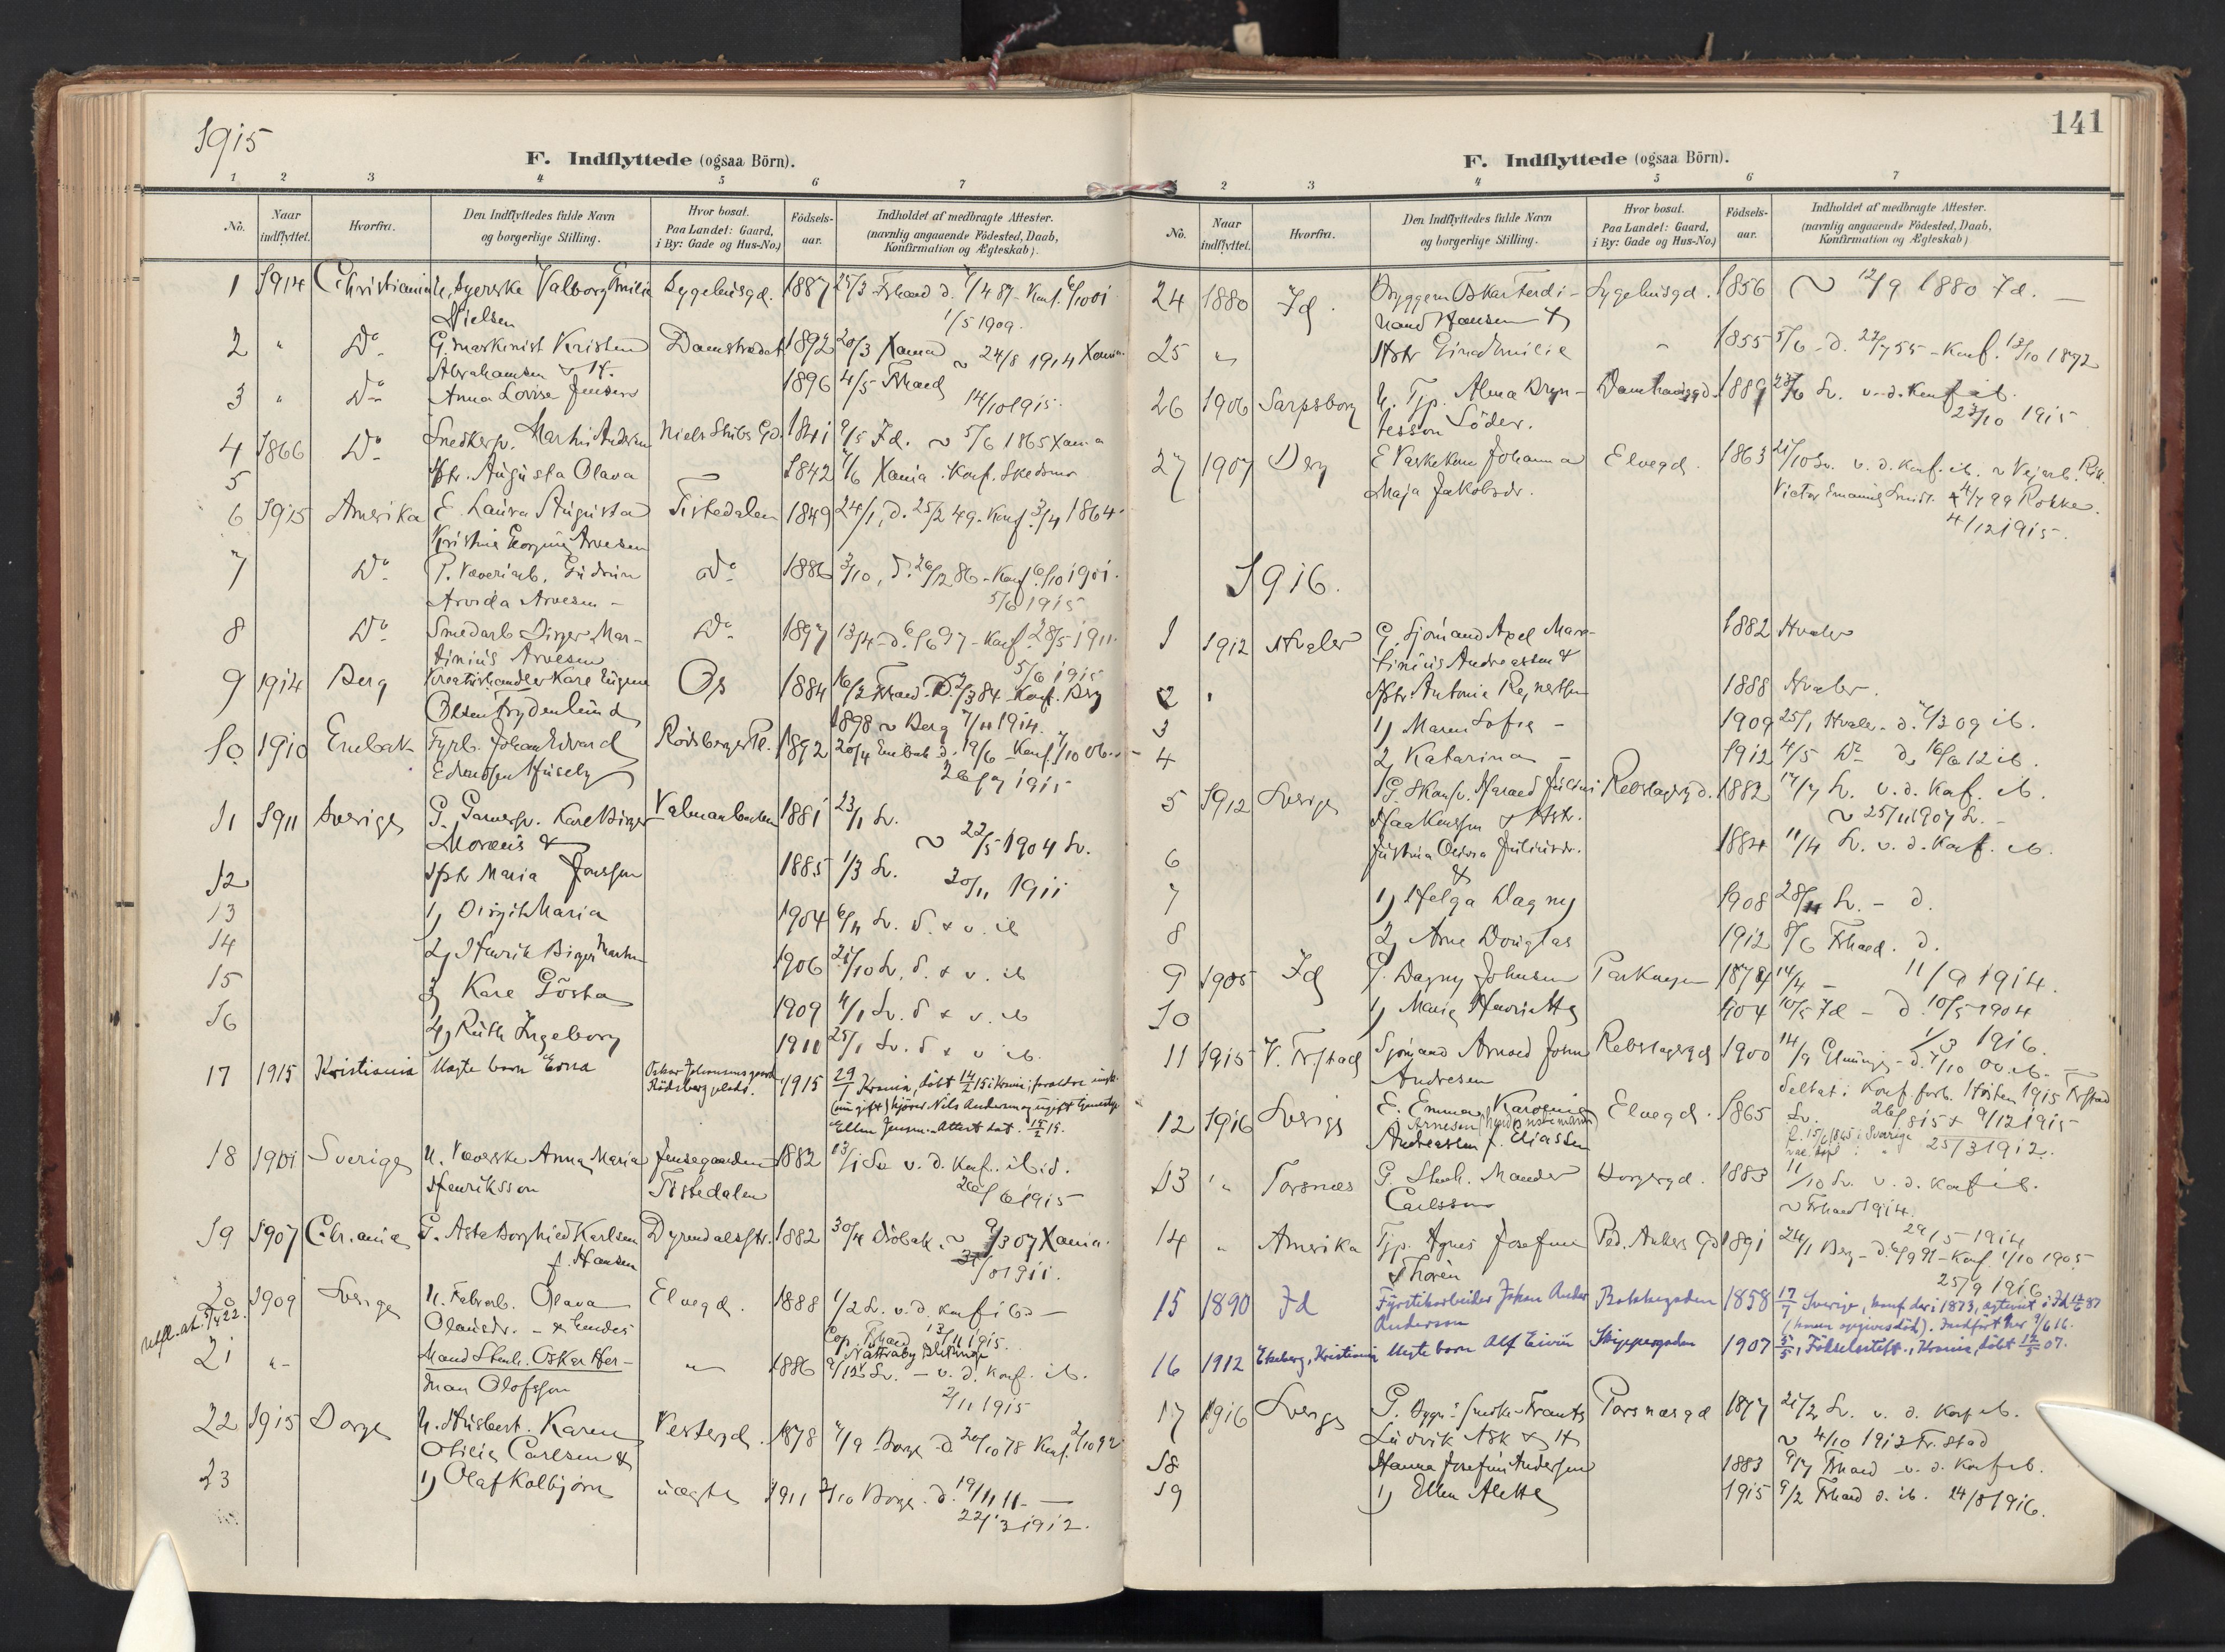 1915
F. Indflyttede (ogsaa Börn).
1 2 3 4 5 6 7
No.
Naar indflyttet.
Hvorfra.
Den Indflyttedes fulde Navn og borgerlige Stilling.
Hvor bosat. Paa Landet: Gaard, i By: Gade og Hus-No.)
Födsels-aar.
Indholdet af medbragte Attester. (navnlig angaaende Födested, Daab, Konfirmation og Ægteskab).
1 1914 Christiania Valborg Emilie Sygehusgd. 1887 25/3 Frhald d. Konf. 6/10 01
Nielsen 1/5 1909.
2 " Do G. Maskinist Kristen Damstrædet 1892 20/3 Xania ~ 24/8 1914 Xania
Abrahamsen & H.
3 " Do Anna Lovise Jensen 1896 4/5 Frhald
14/10 1915.
4 1866 Do Snedkersv. Martin Andersen Niels Stubs Gd. 1841 9/5 Id. ~ 5/6 1865 Xania
5 Hstr. Augusta Olava — 1842 Xania. Konf. Skedsmo
6 1915 Amerika E. Laura Augusta Tistedalen 1849 24/1, d. 25/2 49. Konf. 3/4 1864.
Kristine Georgine Arvesen
7 Do P. Væveriarb. Gudrun Do 1886 3/10, d. 26/12 86 - Konf. 6/10 1901.
Arvida Arvesen - 5/6 1915
8 Do Smedarb. Birger Mar- Do 1897 13/4 - d. 6/6 97 - Konf. 28/5 1911.
tinius Arvesen 5/6 1915
9 1914 Berg Kreaturhandler Karl Eugen Os 1884 16/2 Frhald. D. 2/3 84. Konf. Berg
Olsen Frydenlund 1898 ~ Berg 7/11 1914.
10 1910 Enebak Fyrb. Johan Edvard Rödsberg Pl. 1892 20/4 Enebak d. 19/6 - Konf. 7/10 06.
Edvardsen Huseby
11 1911 Sverige G. Garversv. Karl Birger Valmanbakken 1881 23/1 Sv.
Moræus & ~ 22/5 1904 Sv.
12 Hstr Maria Jonsson 1885 1/3 Sv. 20/11 1911
13 1) Birgit Maria 1904 6/11 Sv. d. & v. ib
14 2) Henrik Birger Martin 1906 21/10 Sv. d. & v. ib
15 3) Karl Gösta 1909 4/1 Sv. d & v. ib
16 4) Ruth Ingeborg 1910 25/1 Sv. d & v ib.
17 1915 Kristiania Uægte barn Erna Oskar Johansensgaard Rödsberg plads. 1915 29/1 Krania, döbt 14/2 15 i Krania, foraldre
(nu gift) kjörer Nils Andersen og ugift
Ellen Jensen. - Attest dat. 15/2 15.
18 1901 Sverige U. Væverske Anna Maria Jensegaarden 1882 13/1 Sv v. d. Konf. ibid.
Henriksson Tistedalen 26/6 1915
19 1907 Chr.ania G. Asta Borghild Karlsen Dyrendalsstr. 1882 30/4 Dröbak. ~ 9/3 07 Xania.
f. Hansen 31/8 1911.
20 1909 Sverige U. Fabrarb. Olava Elvegd. 1888 1/2 Sv. v. d. Konf ib. -
utfl. at. 5/4 22.
Olausdr. - & hendes Cop. Frhald 13/11 1915.
21 " - Mand Stenh. Oskar Her- " 1886 Nättraby Blekinge
9/12 Sv. - v. d. Konf. ib.
man Olofsson 2/11 1915
22 1915 Borge U. Husbest. Karen Vestergd. 1878 7/9 Borge - d 20/10 78 Konf. 2/10 92
Otilie Carlsen &
23 1) Olaf Kolbjörn uægte 1911 2/10 Borge. d. 19/11 11. —
22/3 1912.
141
F. Indflyttede (ogsaa Börn).
2 3 4 5 6 7
No.
Naar indflyttet.
Hvorfra.
Den Indflyttedes fulde Navn og borgerlige Stilling.
Hvor bosat. Paa Landet: Gaard, i By: Gade og Hus-No.)
Födsels-aar.
Indholdet af medbragte Attester. (navnlig angaaende Födested, Daab, Konfirmation og Ægteskab)
24 1880 Id. Bryggem. Oskar Ferdi- Sygehusgd. 1856 ~ 12/9 1880 Id. —
nand Hansen &
25 " Hstr Gina Emilie " 1855 5/6 - d. 22/7 55 - Konf. 13/10 1872
26 1906 Sarpsborg U. Tjp. Alma Bryn- Damhaugsgd. 1889 Sv. v. d. Konf ib.
tesson Söder. 23/10 1915
27 1907 Berg E. Vaskekone Johanna Elvegd. 1863 21/10 Sv. v. d. Konf. ib. ~ Vejarb.
Maja Jakobsdr. Victor Emanuel Smidt. 4/7 99 Rokke.
4/12 1915.
1916.
1 1912 Hvaler G. Sjömand Axel Mar- 1882 Hvaler
tinius Andreassen &
2 " Hstr. Antonie Rejnertsen 1888 Hvaler.
3 1) Maren Sofie - 1909 25/1 Hvaler - d. 7/3 09 ib.
4 2) Katarina - 1912 4/5 Do d. 16/6 12 ib.
5 1912 Sverige G. Skom. Harald Julius Rebslagergd. 1882 17/7 Sv. v. d. Konf. ib.
Haakonssen & Hstr. ~ 25/11 1907 Sv. -
6 Justina Olivia Juliusdr. 1884 11/4 Sv. v. d. Konf. ib.
&
7 1) Helga Dagny 1908 28/11 Sv. - d.
8 2) Arne Douglas 1912 8/6 Frhald. d.
11/9 1914.
9 1905 Id P. Dagny Johnsen Parkvejen 1874 14/4 -
10 1) Marie Henriette 1904 10/5 Id - d. 10/5 1904
1/3 1916.
11 1915 V. Fr.stad Sjömand Arnold John Rebslagergd 1900 14/9 Glemminge - d. 7/10 00. ib. —
Andresen Deltat i Konf. forb. Hösten 1915 Fr.stad
12 1916 Sverige E. Emma Karoline Elvegd. 1865 Sv. 9/12 1915
Arnesen
Andreassen f. Eliassen f. 15/1 1865 i Sverige 25/3 1912.
13 " Torsnes G. Stenh. Mander Borgergd. 1883 11/10 Sv. v. d. Konf ib.
Carlsson ~ Frhald 1914.
29/5 1914
14 " Amerika Tjp. Agnes Josefine Ped. Ankers Gd 1891 24/1 Berg - d. 6/9 91 - Konf. 1/10 1905
Thoren 25/9 1916
15 1890 Id Fyrstikarbeider Johan Anders Bakkegaden 1858 17/1 Sverige, konf. der i 1873, egteviet i Id 87
Andersson (konen opgives död). Indfört her 3/6 16.
16 1912 Ekeberg, Kristiania Uegte barn Alf Eivin Skippergaden 1907 5/5, Födselsstift., Krania, döbt 14/5 07.
17 1916 Sverige G. Bygn. snedker Frants Torsnæsgd 1877 21/2 Sv. v. d. Konf ib.
Ludvik Ask & H ~ 4/10 1912 Fr.stad
18 Hanna Josefine Andersen 1883 9/7 Frhald - v. d. Konf ib.
19 1) Ellen Alette 1915 9/2 Frhald d. ib. 24/8 1916.